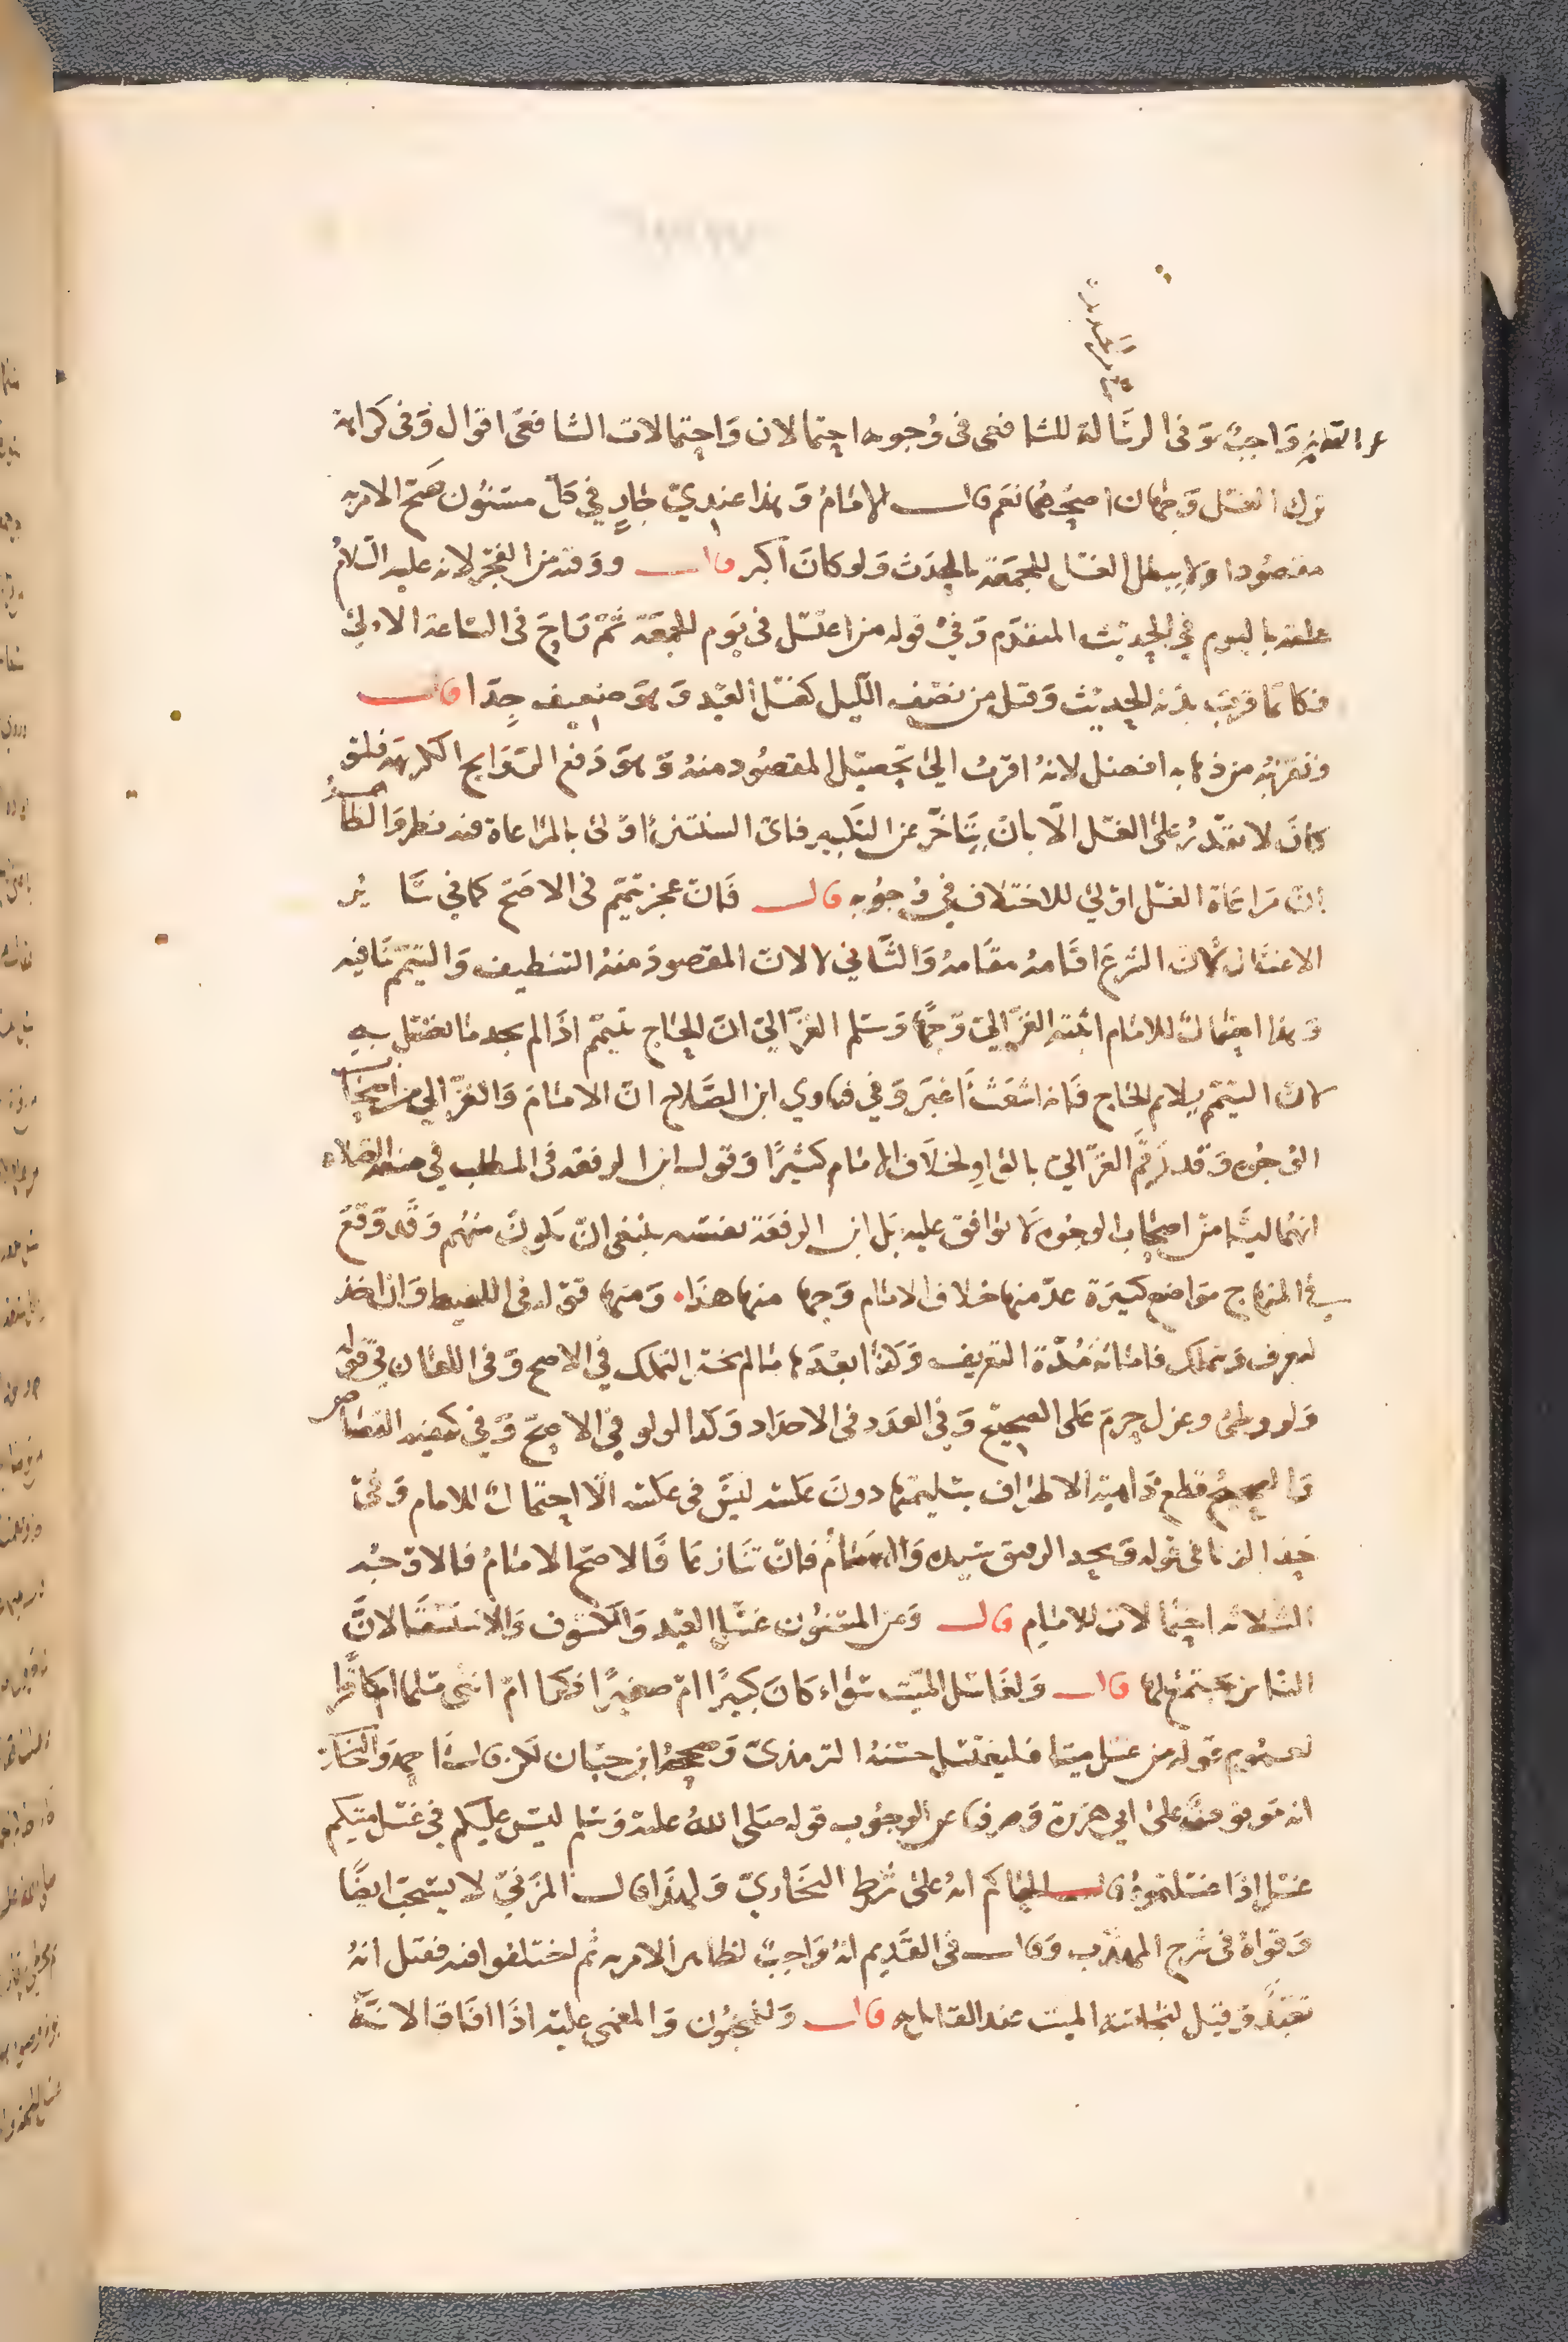 عن القديم واجب وفى الرسالة للشافعى فى وجوبه احتمالان واحتمالات الشافعى اقوال وفى كراهة
ترك الغسل وجهان اصحهما نعم قال الامام وهذا عندي جار في كل مسنون صح الامر به
مقصودا ولا يبطل الغسل للجمعة بالحدث ولو كان اكبر قال ووقته من الفجر لانه عليه السلام
علقه باليوم في الحديث المتقدم وفي قوله من اغتسل فى يوم الجمعة ثم راح فى الساعة الاولى
فكانما قرب بدنة الحديث وقيل من نصف الليل كغسل العيد وهو ضعيف جدا قال
وتقريبه من ذهابه افضل لانه اقرب الى تحصيل المقصود منه وهو دفع الروايح الكريهة فلو
كان لا يقدر على الغسل الا بان يتاخر عن التبكير فاى السنتين اولى بالمراعاة فيه نظر والظاهر
ان مراعاة الغسل اولى للاختلاف في وجوبه قال فان عجز تيمم فى الاصح كما في سائر
الاغسال لان الشرع اقامه مقامه والثاني لا لان المقصود منه التنظيف والتيمم ينافيه
وهذا احتمال للامام اثبته الغزالي وجها وسلم الغزالي ان الحاج يتيمم اذا لم يجد ما يغتسل به
لان التيمم يلايم الحاج فانه اشعث اغبر وفي فتاوي ابن الصلاح ان الامام والغزالي من اصحاب
الوجوه وقد رقم الغزالي بالواو لخلاف الامام كثيرا وقول ابن الرفعة فى المطلب في الصلاة
انهما ليسا من اصحاب الوجوه لا يوافق عليه بل ابن الرفعة نفسه ينبغي ان يكون منهم وقد وقع
في المنهاج مواضع كثيرة عد منها خلاف الامام وجها منها هذا ومنها قوله فى اللقيط وان اخذ
ليعرف ويتملك فامانة مدة التعريف وكذا بعدها ما لم يختر التملك في الاصح وفى اللعان في قوله
ولو وطئ وعزل حرم على الصحيح وفي العدد فى الاحداد وكذا لولو في الاصح وفي كيفية القصاص
والصحيح قطع ذاهبة الاظفار بسليمتها دون عكسه ليس فى عكسه الا احتمال للامام وفى
حد الزنا فى قوله ويحد الرقيق سيده والامام فان تنازعا فالاصح الامام فالاوجه
الثلاثة احتمالان للامام قال ومن المسنون غسل العيد والكسوف والاستسقا لان
الناس يجتمع لها قال ولغاسل الميت سواء كان كبيرا ام صغيرا ذكرا ام انثى مسلما ام كافرا
لعموم قوله من غسل ميتا فليغتسل حسنه الترمذى وصححه ابن حبان لكن قال احمد والبخارى
انه موقوف على ابي هريرة وصرفه عن الوجوب قوله صلى الله عليه وسلم ليس عليكم في غسل ميتكم
غسل اذا غسلتموه قال الحاكم انه على شرط البخاري ولهذا قال المزني لا يستحب ايضا
وقواه فى شرح المهذب وقال فى القديم انه واجب لظاهر الامر به ثم اختلفوا فيه فقيل انه
تعبد وقيل لنجاسة الميت عند القايل به قال والمجنون والمغمى عليه اذا افاقا لانه